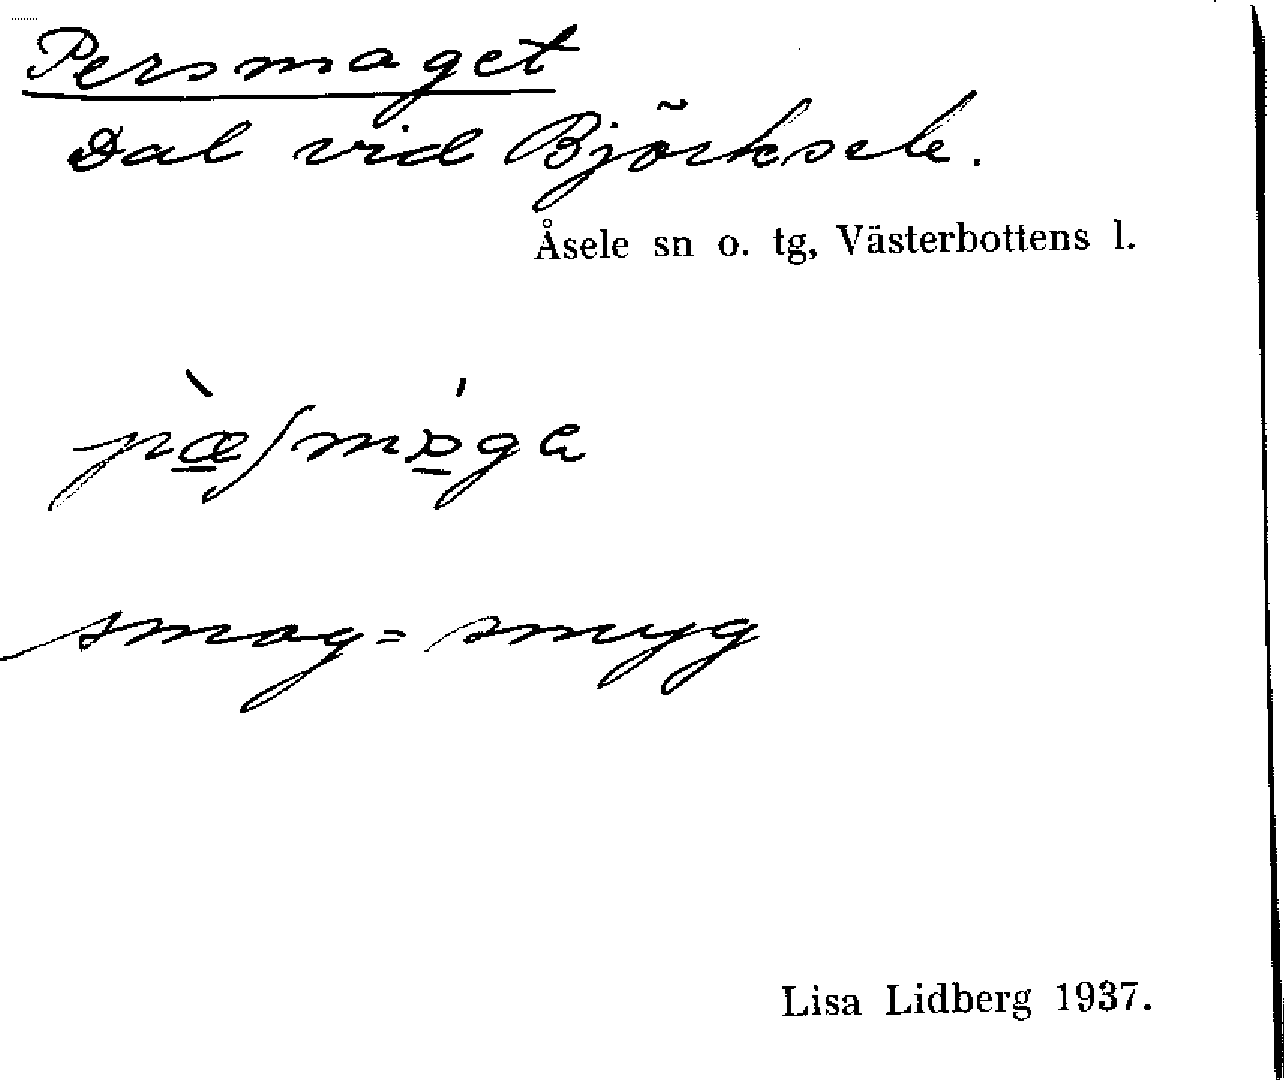 Persmaget
Dal vid Björksele.
Åsele sn o. tg, Västerbottens l.
smog = smyg
Lisa Lidberg 1937.